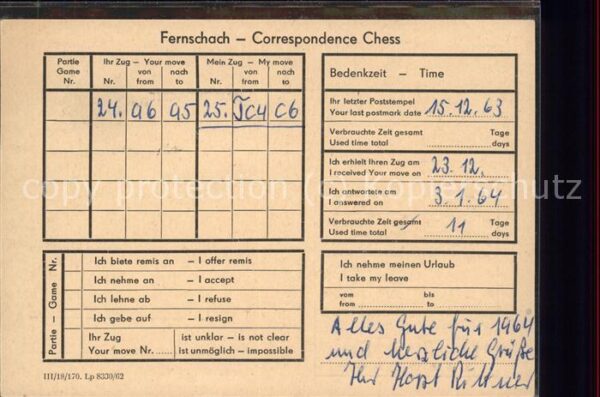 Fernschach – Correspondence Chess
Partie Game Nr.
Ihr Zug – Your move
von from
nach to
Nr.
Mein Zug – My move
von from
nach to
Nr.
24. a6 a5 25. Tc4 c6
Bedenkzeit – Time
Ihr letzter Poststempel
Your last postmark date 15.12.63
Verbrauchte Zeit gesamt Tage
Used time total days
Ich erhielt Ihren Zug am
I received Your move on 23.12.
Ich antwortete am
I answered on 3.1.64
Verbrauchte Zeit gesamt Tage
Used time total 11 days
Partie – Game Nr.
Ich biete remis an – I offer remis
Ich nehme an – I accept
Ich lehne ab – I refuse
Ich gebe auf – I resign
Ihr Zug ist unklar – is not clear
Your move Nr. ist unmöglich – impossible
Ich nehme meinen Urlaub
I take my leave
vom bis
from to
Alles Gute für 1964
und herzliche Grüße
Ihr Horst Rittner
III/18/170. Lp 8330/62